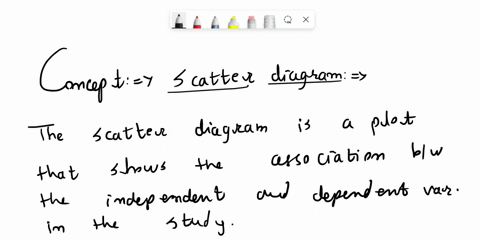 Concept:=> scatter diagram:=>
The scatter diagram is a plot
that shows the association b/w
the independent and dependent var.
in the study.